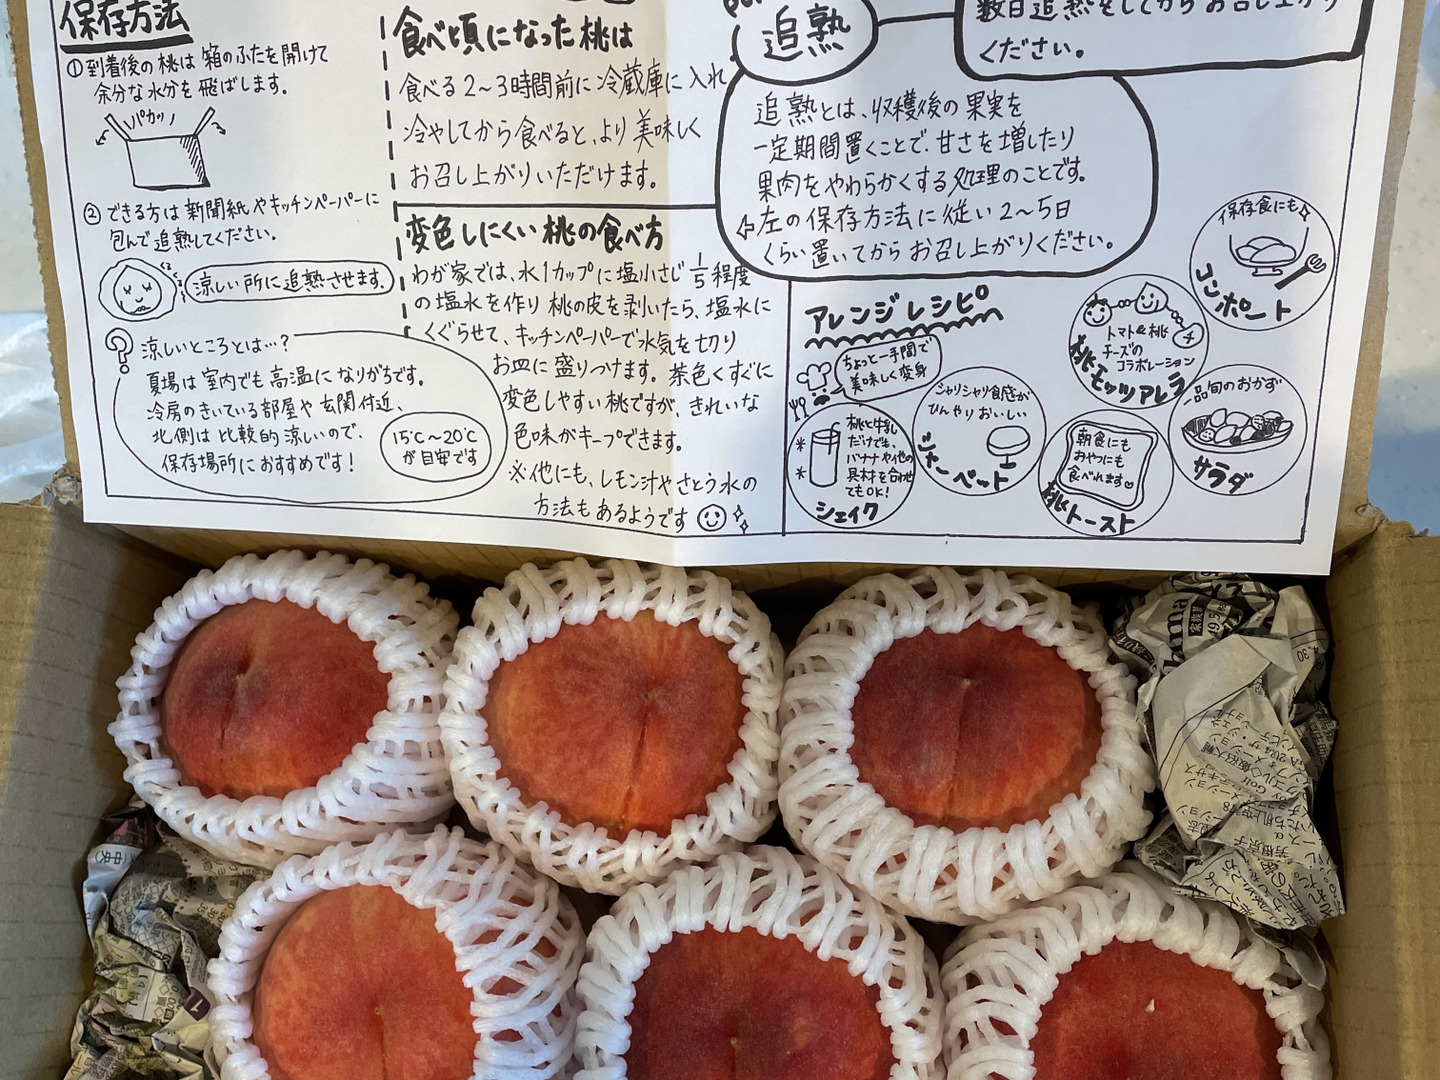 保存方法
①到着後の桃は箱のふたを開けて
余分な水分を飛ばします。
パカッ
②できる方は新聞紙やキッチンペーパーに
包んで追熟してください。
涼しい所に追熟させます。
?涼しいところとは…?
夏場は室内でも高温になりがちです。
冷房のきいている部屋や玄関付近、
北側は比較的涼しいので、
保存場所におすすめです!
15℃〜20℃
が目安です
食べ頃になった桃は
食べる2〜3時間前に冷蔵庫に入れ
冷やしてから食べると、より美味しく
お召し上がりいただけます。
変色しにくい桃の食べ方
わが家では、水1カップに塩小さじ1/5程度
の塩水を作り桃の皮を剥いたら、塩水に
くぐらせて、キッチンペーパーで水気を切り
お皿に盛りつけます。茶色くすぐに
変色しやすい桃ですが、きれいな
色味がキープできます。
※他にも、レモン汁やさとう水の
方法もあるようです
追熟
数日追熟をしてからお召し上がり
ください。
追熟とは、収穫後の果実を
一定期間置くことで、甘さを増したり
果肉をやわらかくする処理のことです。
⇦左の保存方法に従い2〜5日
くらい置いてからお召し上がりください。
アレンジレシピ
ちょっと一手間で
美味しく変身
桃と牛乳
だけでも、
バナナや他の
具材を合わせ
てもOK!
シェイク
シャリシャリ食感が
ひんやりおいしい
シャーベット
トマト&桃
チーズの
コラボレーション
桃モッツァレラ
チ
保存食にも
コンポート
朝食にも
おやつにも
食べれます♡
桃トースト
一品旬のおかず
サラダ